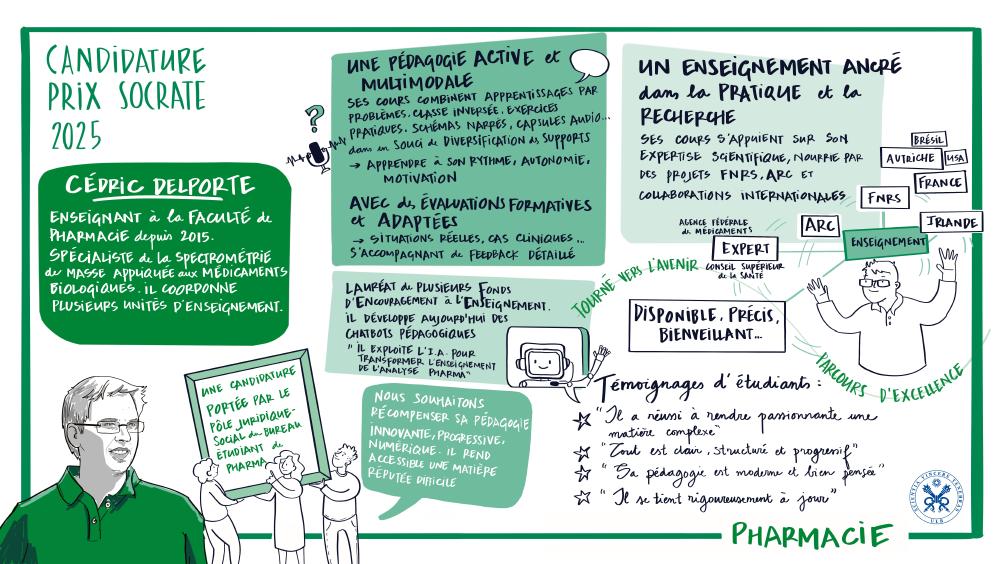 CANDIDATURE
PRIX SOCRATE
2025
CÉDRIC DELPORTE
ENSEIGNANT à la FACULTÉ de
PHARMACIE depuis 2015.
SPÉCIALISTE de la SPECTROMÉTRIE
de MASSE APPLIQUÉE aux MÉDICAMENTS
BIOLOGIQUES. IL COORDONNE
PLUSIEURS UNITÉS D'ENSEIGNEMENT.
UNE CANDIDATURE
PORTÉE PAR LE
PÔLE JURIDIQUE-
SOCIAL du BUREAU
ÉTUDIANT de
PHARMA
?
UNE PÉDAGOGIE ACTIVE et
MULTIMODALE
SES COURS COMBINENT APPRENTISSAGES PAR
PROBLÈMES, CLASSE INVERSÉE, EXERCICES
PRATIQUES. SCHÉMAS NARRÉS, CAPSULES AUDIO...
dans un SOUCI de DIVERSIFICATION des SUPPORTS
→ APPRENDRE à SON RYTHME, AUTONOMIE,
MOTIVATION
AVEC des ÉVALUATIONS FORMATIVES
et ADAPTÉES
→ SITUATIONS RÉELLES, CAS CLINIQUES...
S'ACCOMPAGNANT de FEEDBACK DÉTAILLÉ
LAURÉAT de PLUSIEURS FONDS
D'ENCOURAGEMENT à L'ENSEIGNEMENT.
IL DÉVELOPPE AUJOURD'HUI DES
CHATBOTS PÉDAGOGIQUES
"IL EXPLOITE L'I.A. POUR
TRANSFORMER L'ENSEIGNEMENT
DE L'ANALYSE PHARMA"
NOUS SOUHAITONS
RÉCOMPENSER SA PÉDAGOGIE
INNOVANTE, PROGRESSIVE,
NUMÉRIQUE. IL REND
ACCESSIBLE UNE MATIÈRE
RÉPUTÉE DIFFICILE
UN ENSEIGNEMENT ANCRÉ
dans la PRATIQUE et la
RECHERCHE
SES COURS S'APPUIENT SUR SON
EXPERTISE SCIENTIFIQUE, NOURRIE PAR
DES PROJETS FNRS, ARC ET
COLLABORATIONS INTERNATIONALES
BRÉSIL
AUTRICHE
USA
FRANCE
FNRS
IRLANDE
ARC
AGENCE FÉDÉRALE
de MÉDICAMENTS
EXPERT
CONSEIL SUPÉRIEUR
de la SANTÉ
ENSEIGNEMENT
TOURNÉ VERS L'AVENIR
DISPONIBLE, PRÉCIS,
BIENVEILLANT...
PARCOURS D'EXCELLENCE
Témoignages d'étudiants :
"Il a réussi à rendre passionnante une
matière complexe"
"Tout est clair, structuré et progressif"
"Sa pédagogie est moderne et bien pensée"
"Il se tient rigoureusement à jour"
SCIENTIA VINCERE TENEBRAS
ULB
PHARMACIE